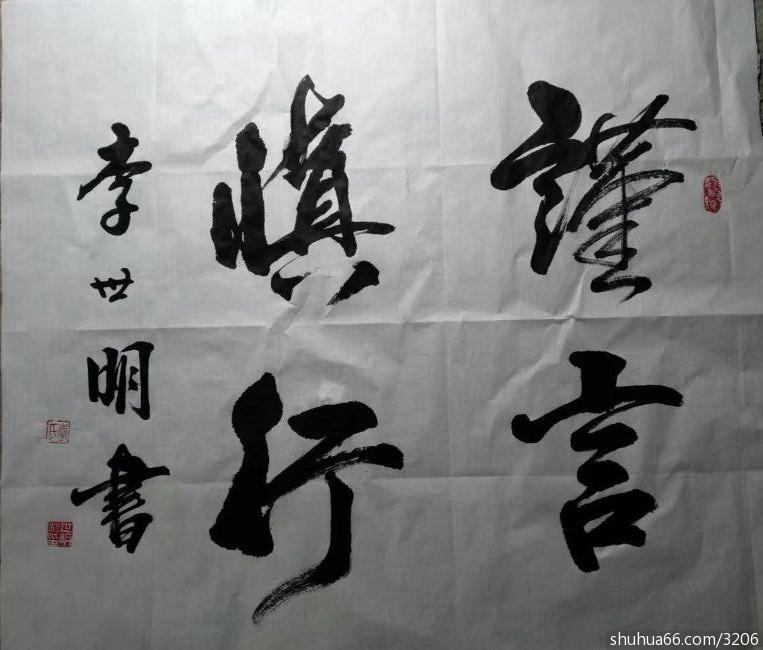 謹言
慎行
李世明書
shuhua66.com/3206